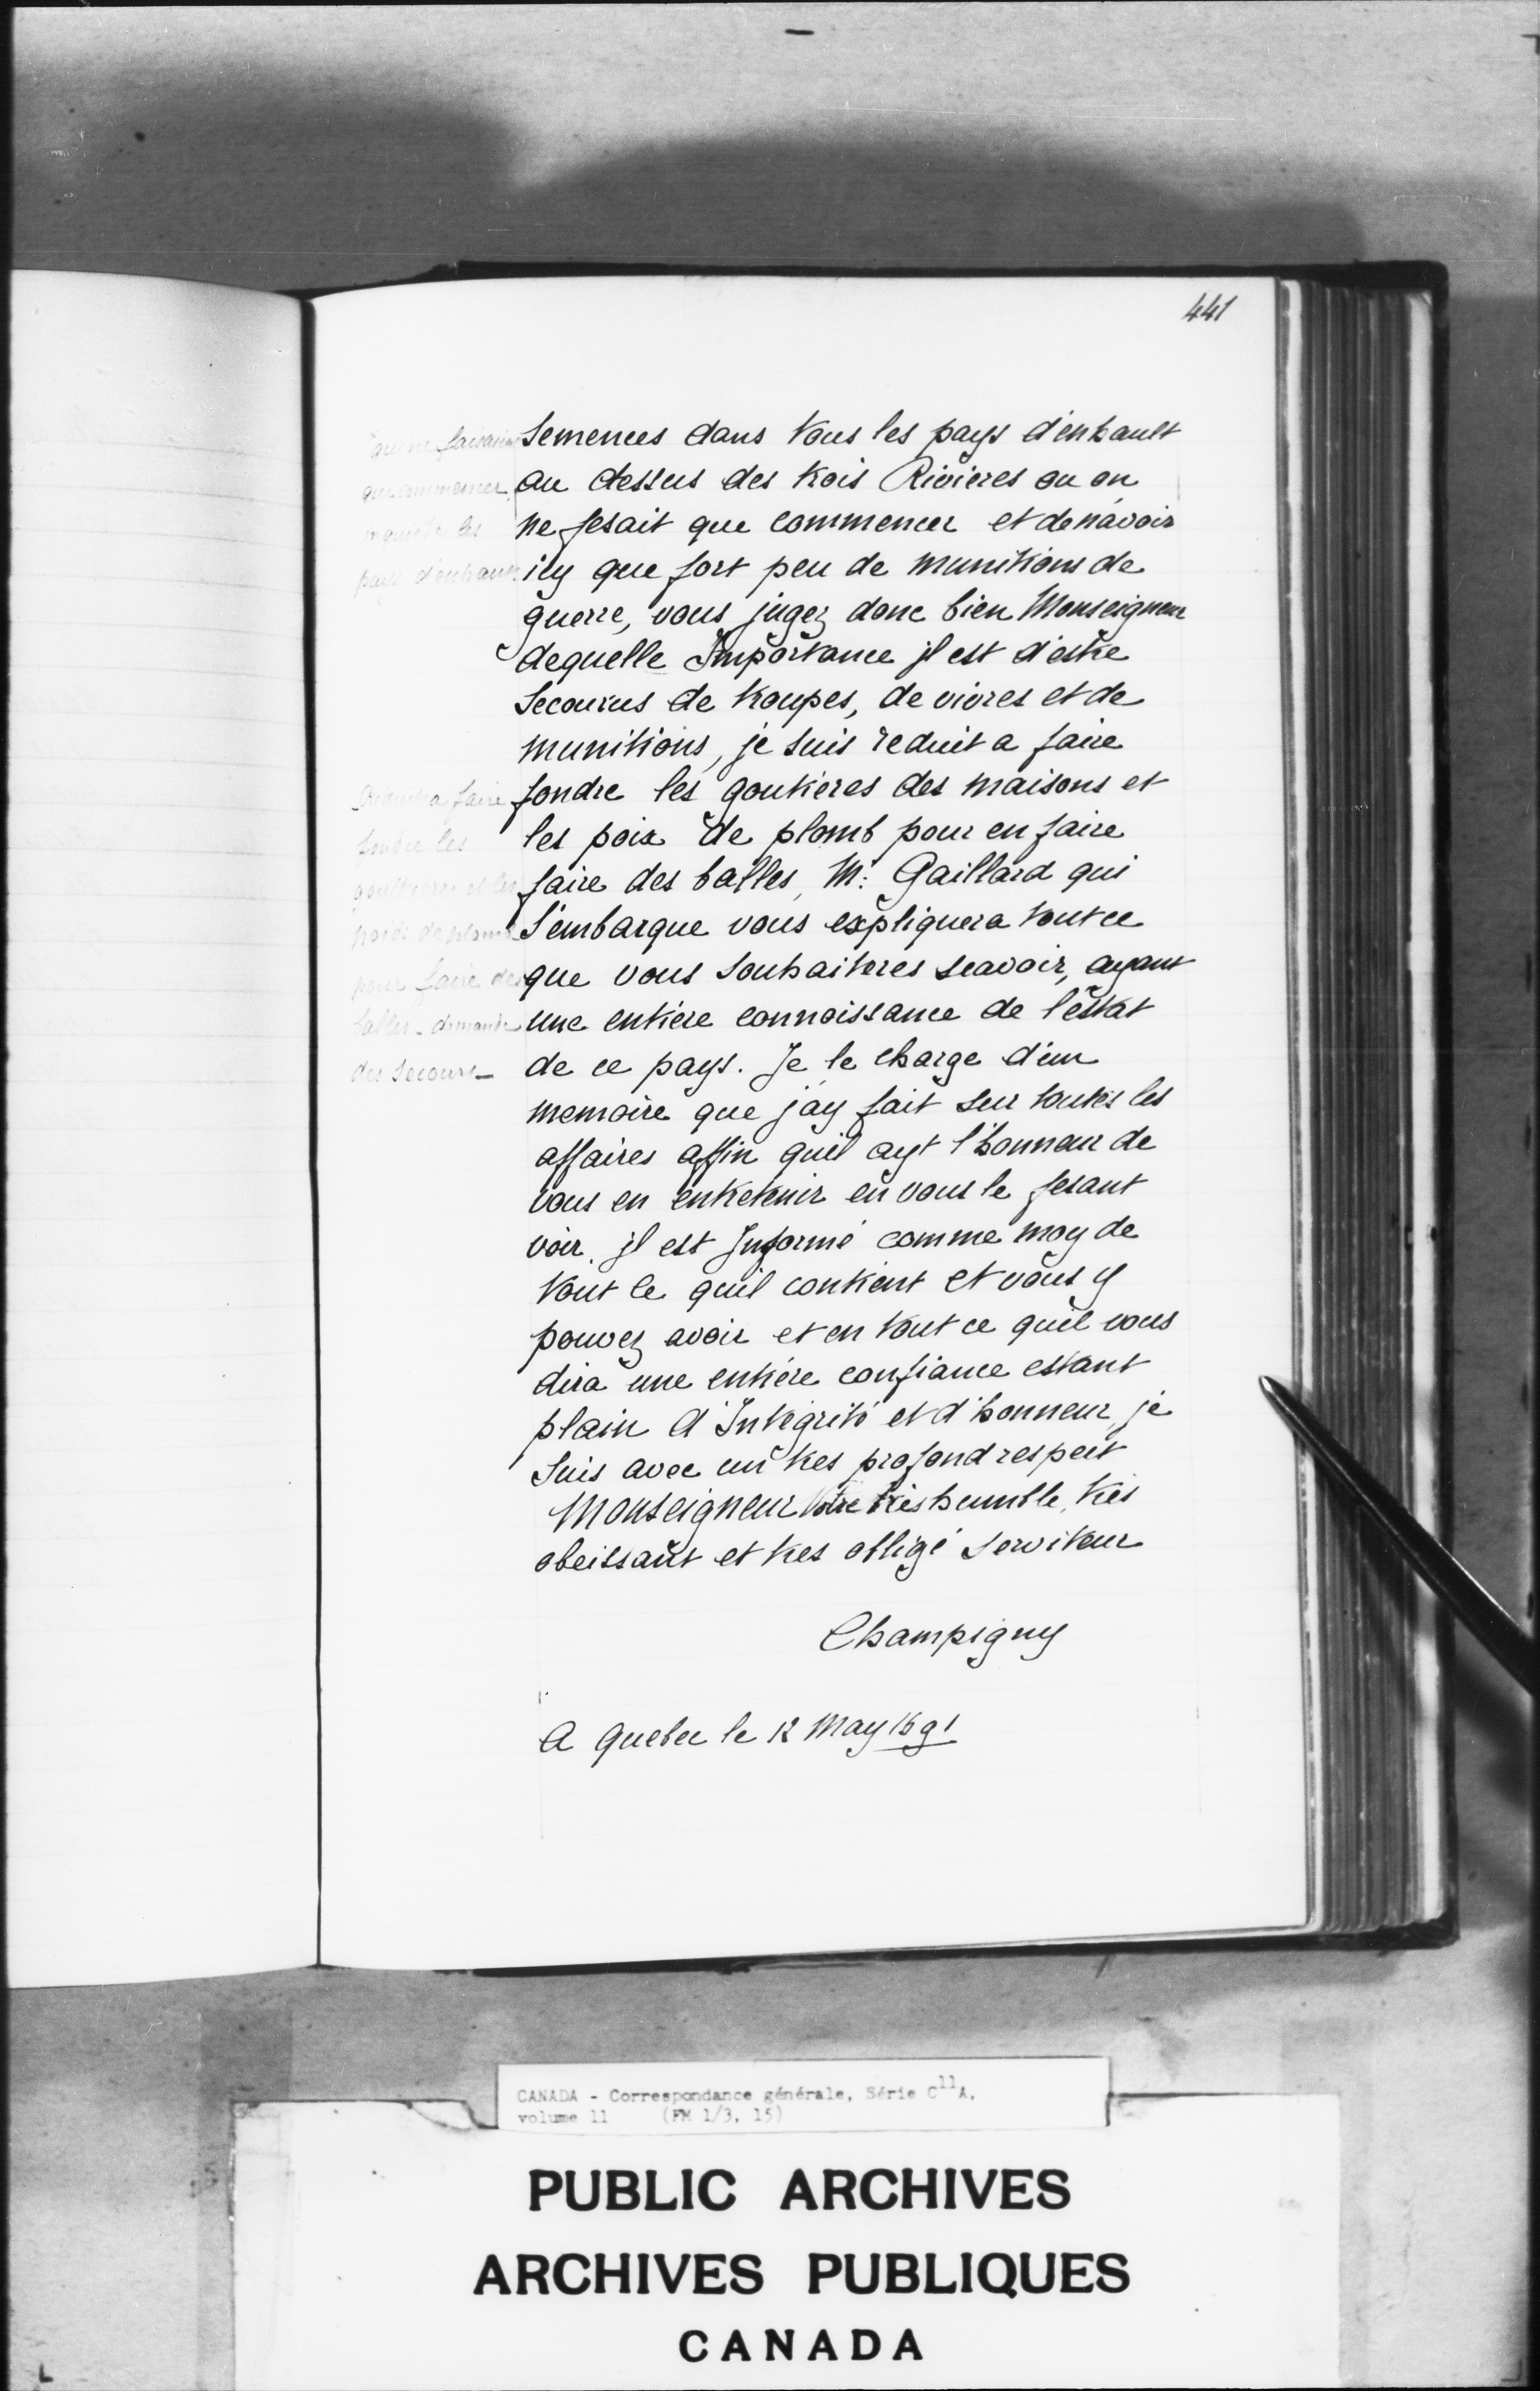 441
Semences dans tous les pays d'enhault
au dessus des trois Rivieres ou on
ne fesait que commencer et de n'avoir
icy que fort peu de munitions de
guerre, vous jugez donc bien Monseigneur
de quelle Importance il est d'estre
Secourus de troupes, de vivres et de
munitions, je suis reduit a faire
fondre les goutieres des maisons et
les poix de plomb pour en faire
faire des balles, Mr. Gaillard qui
S'embarque vous expliquera tout ce
que vous souhaiteres scavoir, ayant
une entiere connoissance de l'estat
de ce pays. Je le charge d'un
memoire que j'ay fait sur toutes les
affaires affin quil ayt l'honneur de
vous en entretenir en vous le fesant
voir. il est Informé comme moy de
tout ce quil contient et vous y
pouvez avoir et en tout ce quil vous
dira une entiére confiance estant
plain d'Intégrité et d'honneur, je
suis avec un tres profond respect
Monseigneur Votre très humble, très
obeissant et tres obligé serviteur
Champigny
A Quebec le 12 May 1691
que commencer
les
pays d'enhault
Reduit a faire
fondre les
et les
poids de plomb
pour faire des
balles - demande
des secours -
CANADA - Correspondance générale, Série C11A,
volume 11 (FM 1/3, 15)
PUBLIC ARCHIVES
ARCHIVES PUBLIQUES
CANADA